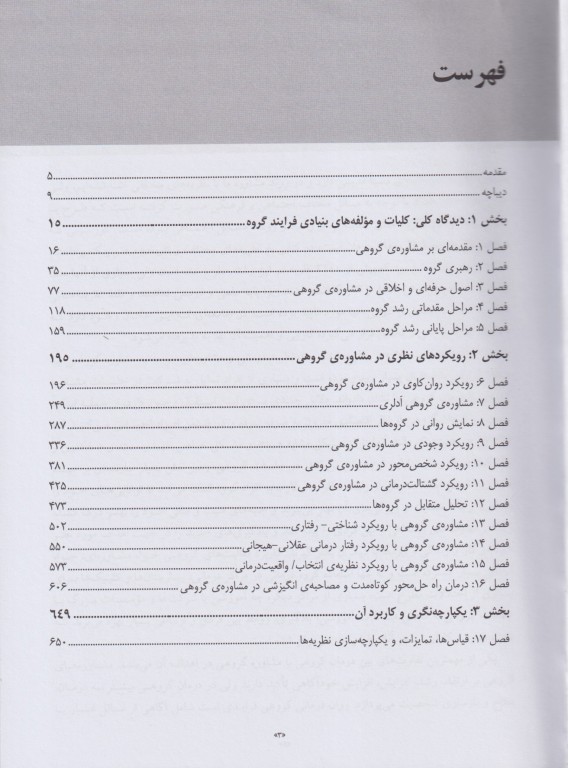 فهرست
مقدمه ........ ۵
دیباچه ........ ۹
بخش ۱: دیدگاه کلی: کلیات و مؤلفه‌های بنیادی فرایند گروه ........ ۱۵
فصل ۱: مقدمه‌ای بر مشاوره‌ی گروهی ........ ۱۶
فصل ۲: رهبری گروه ........ ۳۵
فصل ۳: اصول حرفه‌ای و اخلاقی در مشاوره‌ی گروهی ........ ۷۷
فصل ۴: مراحل مقدماتی رشد گروه ........ ۱۱۸
فصل ۵: مراحل پایانی رشد گروه ........ ۱۵۹
بخش ۲: رویکردهای نظری در مشاوره‌ی گروهی ........ ۱۹۵
فصل ۶: رویکرد روان‌کاوی در مشاوره‌ی گروهی ........ ۱۹۶
فصل ۷: مشاوره‌ی گروهی آدلری ........ ۲۴۹
فصل ۸: نمایش روانی در گروه‌ها ........ ۲۸۷
فصل ۹: رویکرد وجودی در مشاوره‌ی گروهی ........ ۳۳۶
فصل ۱۰: رویکرد شخص‌محور در مشاوره‌ی گروهی ........ ۳۸۱
فصل ۱۱: رویکرد گشتالت‌درمانی در مشاوره‌ی گروهی ........ ۴۲۵
فصل ۱۲: تحلیل متقابل در گروه‌ها ........ ۴۷۳
فصل ۱۳: مشاوره‌ی گروهی با رویکرد شناختی- رفتاری ........ ۵۰۲
فصل ۱۴: مشاوره‌ی گروهی با رویکرد رفتار درمانی عقلانی-هیجانی ........ ۵۵۰
فصل ۱۵: مشاوره‌ی گروهی با رویکرد نظریه‌ی انتخاب/ واقعیت‌درمانی ........ ۵۷۳
فصل ۱۶: درمان راه حل‌محور کوتاه‌مدت و مصاحبه‌ی انگیزشی در مشاوره‌ی گروهی ........ ۶۰۶
بخش ۳: یکپارچه‌نگری و کاربرد آن ........ ۶۴۹
فصل ۱۷: قیاس‌ها، تمایزات، و یکپارچه‌سازی نظریه‌ها ........ ۶۵۰
«۳»